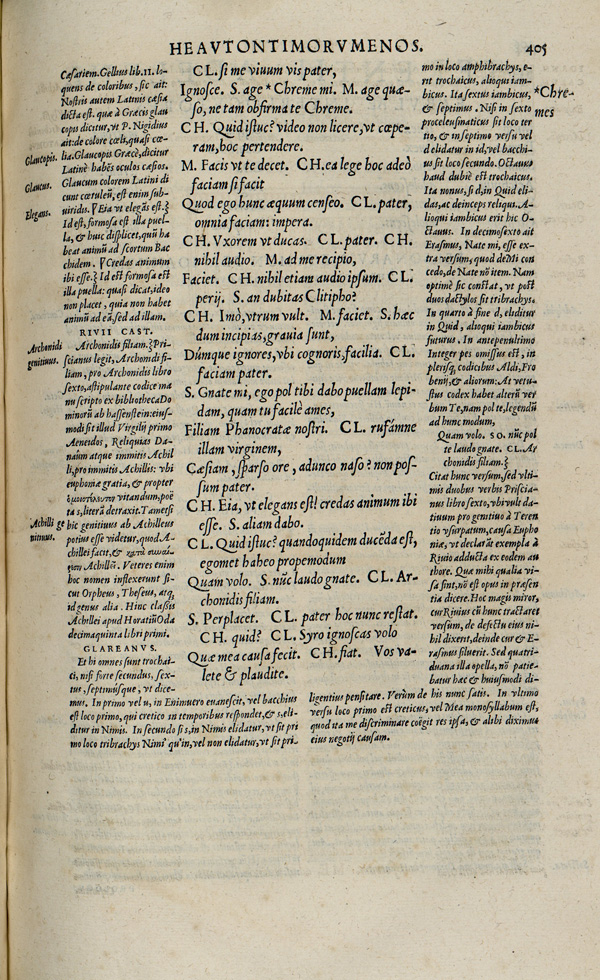 HEAVTONTIMORVMENOS. 405
Cæsariem. Gellius lib. 11. lo-
quens de coloribus, sic ait:
Nostris autem Latinis cæsia
dicta est. quæ à Græcis glau
copis dicitur, vt P. Nigidius
ait: de colore cœli, quasi cœ-
lia. Glaucopis Græcè, dicitur
Latinè habēs oculos cæsios.
Glaucum colorem Latini di
cunt cœruleū, est enim sub-
viridis. Eia vt elegās est.
Id est, formosa est illa puel-
la, & huic displicet, quū ha
beat animū ad scortum Bac
chidem. Credas animum
ibi esse. Id est formosa est
illa puella: quasi dicat, ideo
non placet, quia non habet
animū ad eā, sed ad illam.
RIVII CAST.
Archonidi filiam. Pri-
scianus legit, Archonidi fi-
liam, pro Archonidis libro
sexto, astipulante codice ma
nu scripto ex bibliotheca Do
minorū ab hassenstein: eius-
modi sit illud Virgilij primo
Aeneidos, Reliquias Da-
naûm atque immitis Achil
li, pro immitis Achillis: vbi
euphonia gratia, & propter
vitandum, poë
ta s, literā detraxit. Tametsi
hic genitiuus ab Achilleus
potius esse videtur, quod A-
chillei facit, &
Achilli. Veteres enim
hoc nomen inflexerunt si-
cut Orpheus, Theseus, atq;
id genus alia. Hinc classis
Achillei apud Horatiū Oda
decimaquinta libri primi.
GLAREANVS.
Et hi omnes sunt trochai-
ci, nisi forte secundus, sex-
tus, septimúsque, vt dice-
mus. In primo vel u, in Enimuero euanescit, vel bacchius
est loco primo, qui cretico in temporibus respondet, & s, eli-
ditur in Nimis. In secundo si s, in Nimis elidatur, vt sit pri
mo loco tribrachys Nimi' qu'in, vel non elidatur, vt sit pri-
Glaucopis.
Glaucus.
Elegans.
Archonidi
genitiuus.
Achilli ge
nitiuus.
CL. si me viuum vis pater,
Ignosce. S. age * Chreme mi. M. age quæ-
so, ne tam obfirma te Chreme.
CH. Quid istuc? video non licere, vt cœpe-
ram, hoc pertendere.
M. Facis vt te decet. CH. ea lege hoc adeò
faciam si facit
Quod ego hunc æquum censeo. CL. pater,
omnia faciam: impera.
CH. Vxorem vt ducas. CL. pater. CH.
nihil audio. M. ad me recipio,
Faciet. CH. nihil etiam audio ipsum. CL.
perij. S. an dubitas Clitipho?
CH. Imò, vtrum vult. M. faciet. S. hæc
dum incipias, grauia sunt,
Dúmque ignores, vbi cognoris, facilia. CL.
faciam pater.
S. Gnate mi, ego pol tibi dabo puellam lepi-
dam, quam tu facilè ames,
Filiam Phanocratæ nostri. CL. rufámne
illam virginem,
Cæsiam, sparso ore, adunco naso? non pos-
sum pater.
CH. Eia, vt elegans est! credas animum ibi
esse. S. aliam dabo.
CL. Quid istuc? quandoquidem ducēda est,
egomet habeo propemodum
Quam volo. S. nūc laudo gnate. CL. Ar-
chonidis filiam.
S. Perplacet. CL. pater hoc nunc restat.
CH. quid? CL. Syro ignoscas volo
Quæ mea causa fecit. CH. fiat. Vos va-
lete & plaudite.
mo in loco amphibrachys, e-
rit trochaicus, alioqus iam-
bicus. Ita sextus iambicus,
& septimus. Nisi in sexto
proceleusmaticus sit loco ter
tio, & in septimo versu vel
d elidatur in id, vel bacchi-
us sit loco secundo. Octauus
haud dubiè est trochaicus.
Ita nonus, si d, in Quid eli-
das, ac deinceps reliqui. A-
lioqui iambicus erit hic O-
ctauus. In decimosexto ait
Erasmus, Nate mi, esse ex-
tra versum, quod de Mi con
cedo, de Nate nō item. Nam
optimè sic constat, vt post
duos dactylos sit tribrachys.
In quarto à fine d, eliditur
in Quid, alioqui iambicus
futurus. In antepenultimo
Integer pes omissus est, in
plerisq; codicibus Aldi, Fro
benij, & aliorum: At vetu-
stus codex habet alterū ver
bum Te, nam pol te, legendū
ad hunc modum,
Quam volo. SO. nūc pol
te laudo gnate. CL. Ar
chonidis filiam.
Citat hunc versum, sed vlti-
mis duobus verbis Priscia-
nus libro sexto, vbi vult da-
tiuum pro genitiuo à Teren
tio vsurpatum, causa Eupho
niæ, vt declarāt exempla à
Riuio adducta ex eodem au
thore. Quæ mihi qualia vi-
sa sint, nō est opus in præsen
tia dicere. Hoc magis miror,
cur Riuius cū hunc tractaret
versum, de defectu eius ni-
hil dixerit, deinde cur & E-
rasmus siluerit. Sed quatri-
duana illa opella, nō patie-
batur hæc & huiusmodi di-
ligentius pensitare. Verùm de his nunc satis. In vltimo
versu loco primo est creticus, vel Mea monosyllabum est,
quod ita me discriminare coëgit res ipsa, & alibi diximus
eius negotij causam.
*Chre-
mes